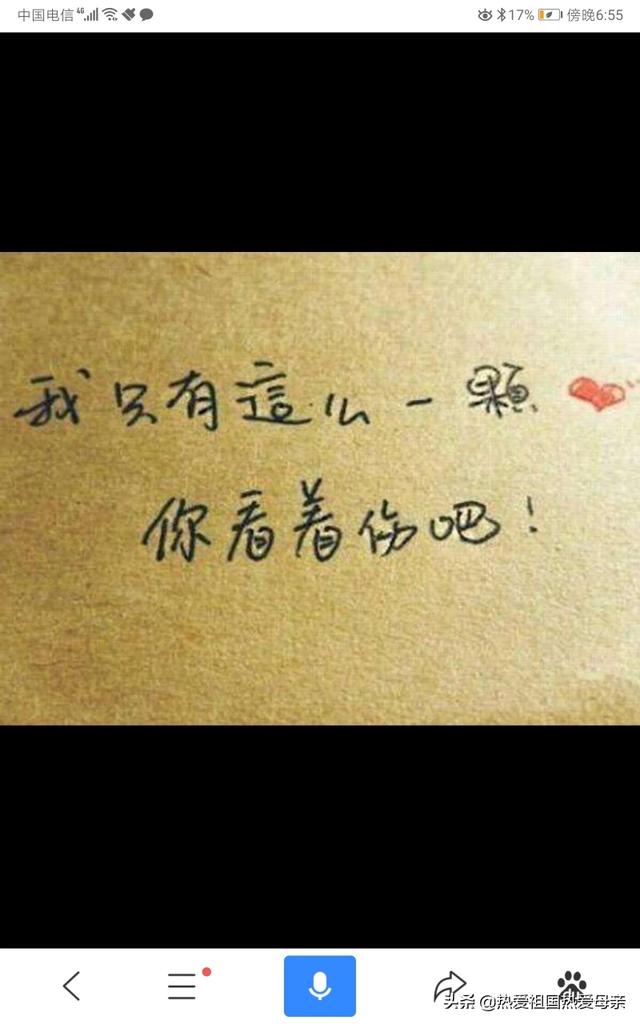 中国电信 4G 17% 傍晚6:55
我只有這么一顆
你看着伤吧!
du
头条 @热爱祖国热爱母亲